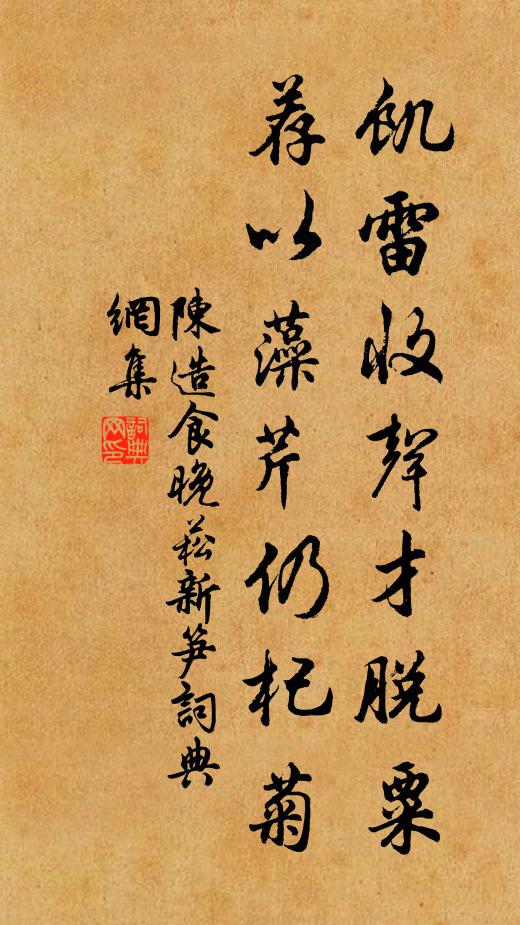 飢雷收聲才脫粟
荐以藻芹仍杞菊
陳造食晚菘新笋詞典
網集
詞典
网印